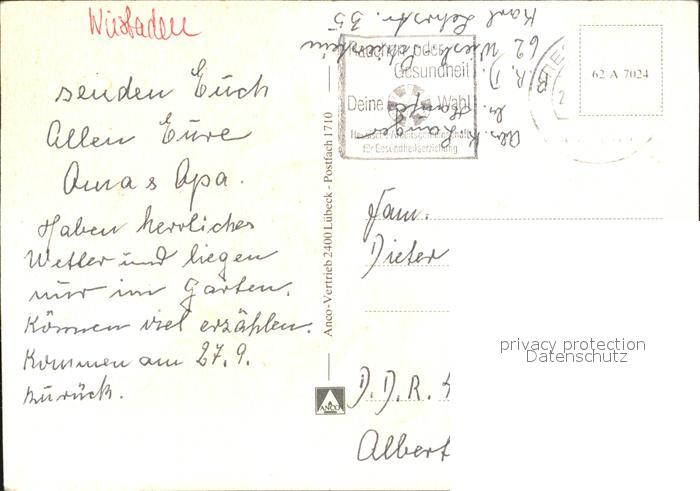 Wiesbaden
senden Euch
Allen Eure
Oma & Opa.
Haben herrliches
Wetter und liegen
nur im Garten.
Können viel erzählen.
Kommen am 27.9.
zurück.
Anco-Vertrieb 2400 Lübeck - Postfach 1710
ANCO
Abs.
Langer
B.R.D.
62 Wiesb.
Karl Lehrstr. 35
Rauchen oder
Gesundheit
Deine Wahl
Hessische Arbeitsgemeinschaft
für Gesundheitserziehung
62 A 7024
Fam.
Dieter
privacy protection
Datenschutz
D.D.R.
Albert